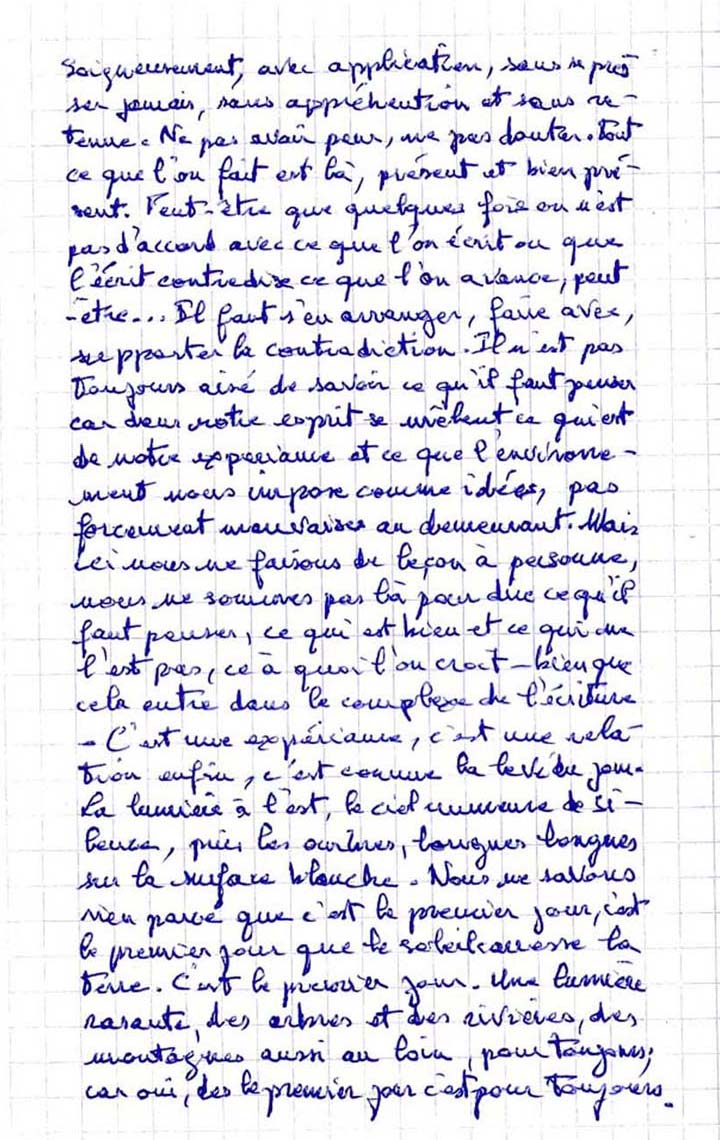 Soigneusement, avec application, sans se pres
ser jamais, sans appréhention et sans re-
tenue. Ne pas avoir peur, ne pas douter. Tout
ce que l'on fait est là, présent et bien pré-
sent. Peut-être que quelques fois on n'est
pas d'accord avec ce que l'on écrit ou que
l'écrit contredise ce que l'on avance, peut
-être... Il faut s'en arranger, faire avec,
supporter la contradiction. Il n'est pas
toujours aisé de savoir ce qu'il faut penser
car dans notre esprit se mêlent ce qui est
de notre expériance et ce que l'environne-
ment nous impose comme idées, pas
forcement mauvaises au demeurant. Mais
ici nous ne faisons de leçon à personne,
nous ne sommes pas là pour dire ce qu'il
faut penser, ce qui est bien et ce qui ne
l'est pas, ce à quoi l'on croit - bien que
cela entre dans le complexe de l'écriture
- C'est une expériance, c'est une rela-
tion enfin, c'est comme la levée du jour.
La lumière à l'est, le ciel murmure de si-
lence, puis les ombres, longues longues
sur la surface blanche. Nous ne savons
rien parce que c'est le premier jour, c'est
le premier jour que le soleil caresse la
terre. C'est le premier jour. Une lumière
rasante, des arbres et des rivières, des
montagnes aussi au loin, pour toujours;
car oui, des le premier jour c'est pour toujours.